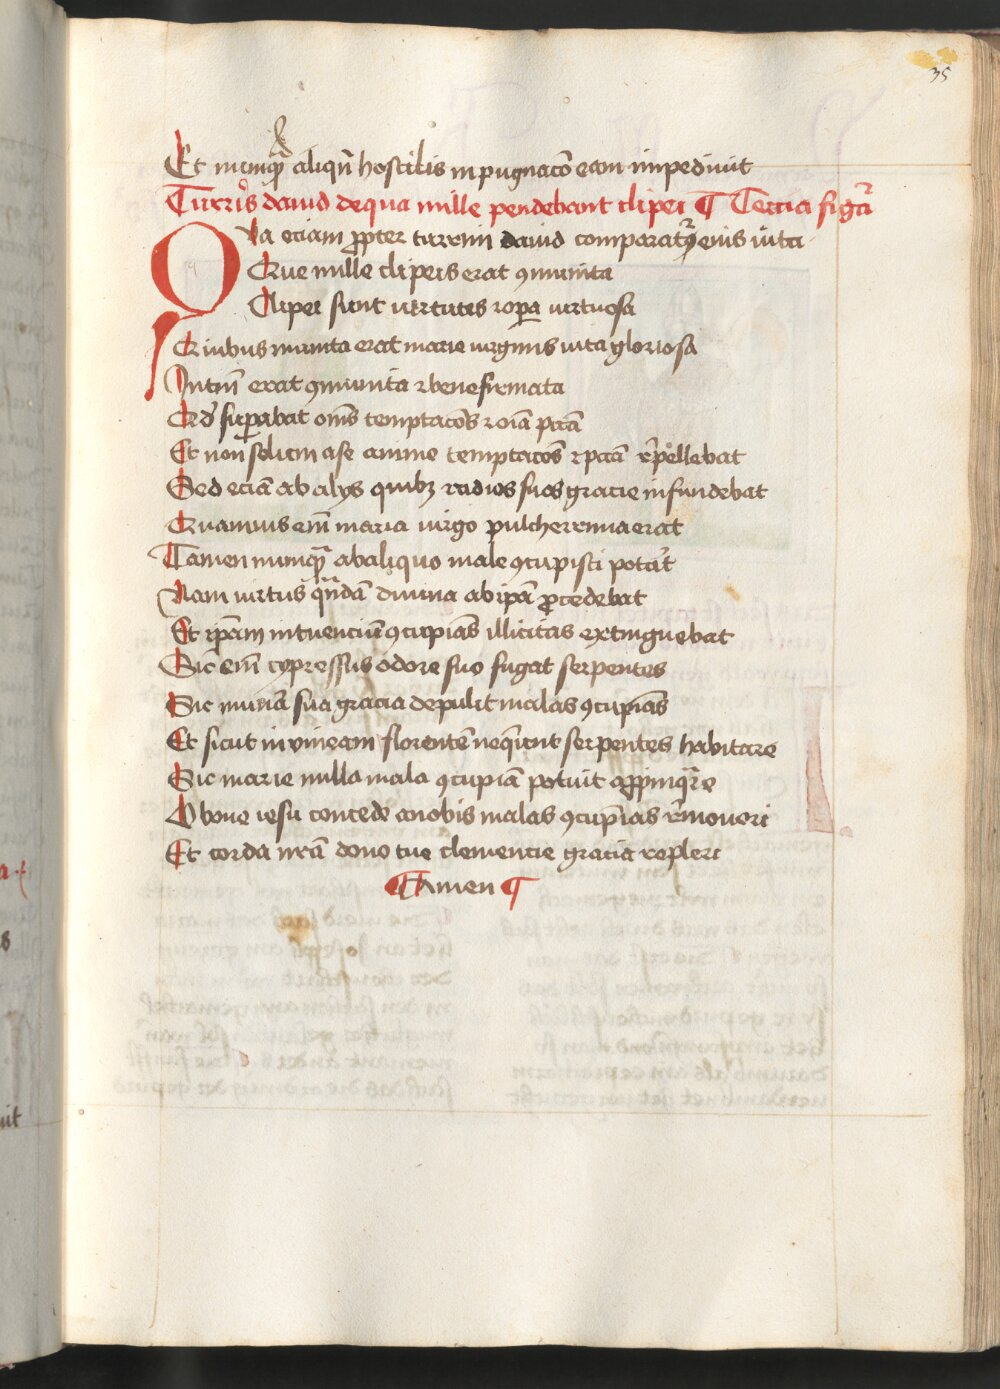 35
Et nunqꝫ aliqñ hostilis inpugnacō eam impediuit
Turris dauid de qua mille pendebant clipei ¶ Tercia figᷓa
Qva eciam ꝓpter turrim dauid comparatᷣ eius vita
Que mille clipeis erat ꝯmunita
Clipei sunt virtutes ⁊ oꝑa virtuosa
Quibus munita erat marie virginis vita gloriosa
Intm̄ erat ꝯmunita ⁊ bene firmata
Qd̓ suꝑabat om̄s temptacōes ⁊ oīa pctā
Et non solum a se anime temptacōes ⁊ pctā repellebat
Sed eciā ab alijs quibꝫ radios suos gracie infundebat
Quamuis em̄ maria virgo pulcherrima erat
Tamen nunqᷓ ab aliquo male ꝯcupisci potᷣat
Nam virtus qn̄dā diuina ab ip̄a ꝓcedebat
Et ip̄am intuenciū ꝯcupiam̄s illicitas extinguebat
Sic em̄ cypressus odore suo fugat serpentes
Sic maria sua gracia depulit malas ꝯcupiam̄s
Et sicut in vineam florentē neqͥunt serpentes habitare
Sic marie nulla mala ꝯcupiam̄ potuit aꝓpinqᷓre
O bone iesu concede a nobis malas ꝯcupiam̄s remoueri
Et corda nr̄a dono tue clemencie gracia repleri
¶ Amen ¶